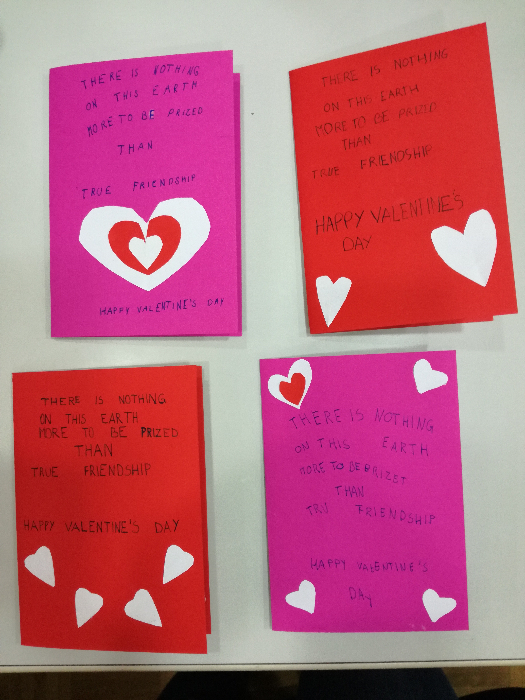 THERE IS NOTHING
ON THIS EARTH
MORE TO BE PRIZED
THAN
TRUE FRIENDSHIP
HAPPY VALENTINE'S DAY
THERE IS NOTHING
ON THIS EARTH
MORE TO BE PRIZED
THAN
TRUE FRIENDSHIP
HAPPY VALENTINE'S
DAY
THERE IS NOTHING
ON THIS EARTH
MORE TO BE PRIZED
THAN
TRUE FRIENDSHIP
HAPPY VALENTINE'S DAY
THERE IS NOTHING
ON THIS EARTH
MORE TO BE PRIZET
THAN
TRU FRIENDSHIP
HAPPY VALENTINE'S
DAY